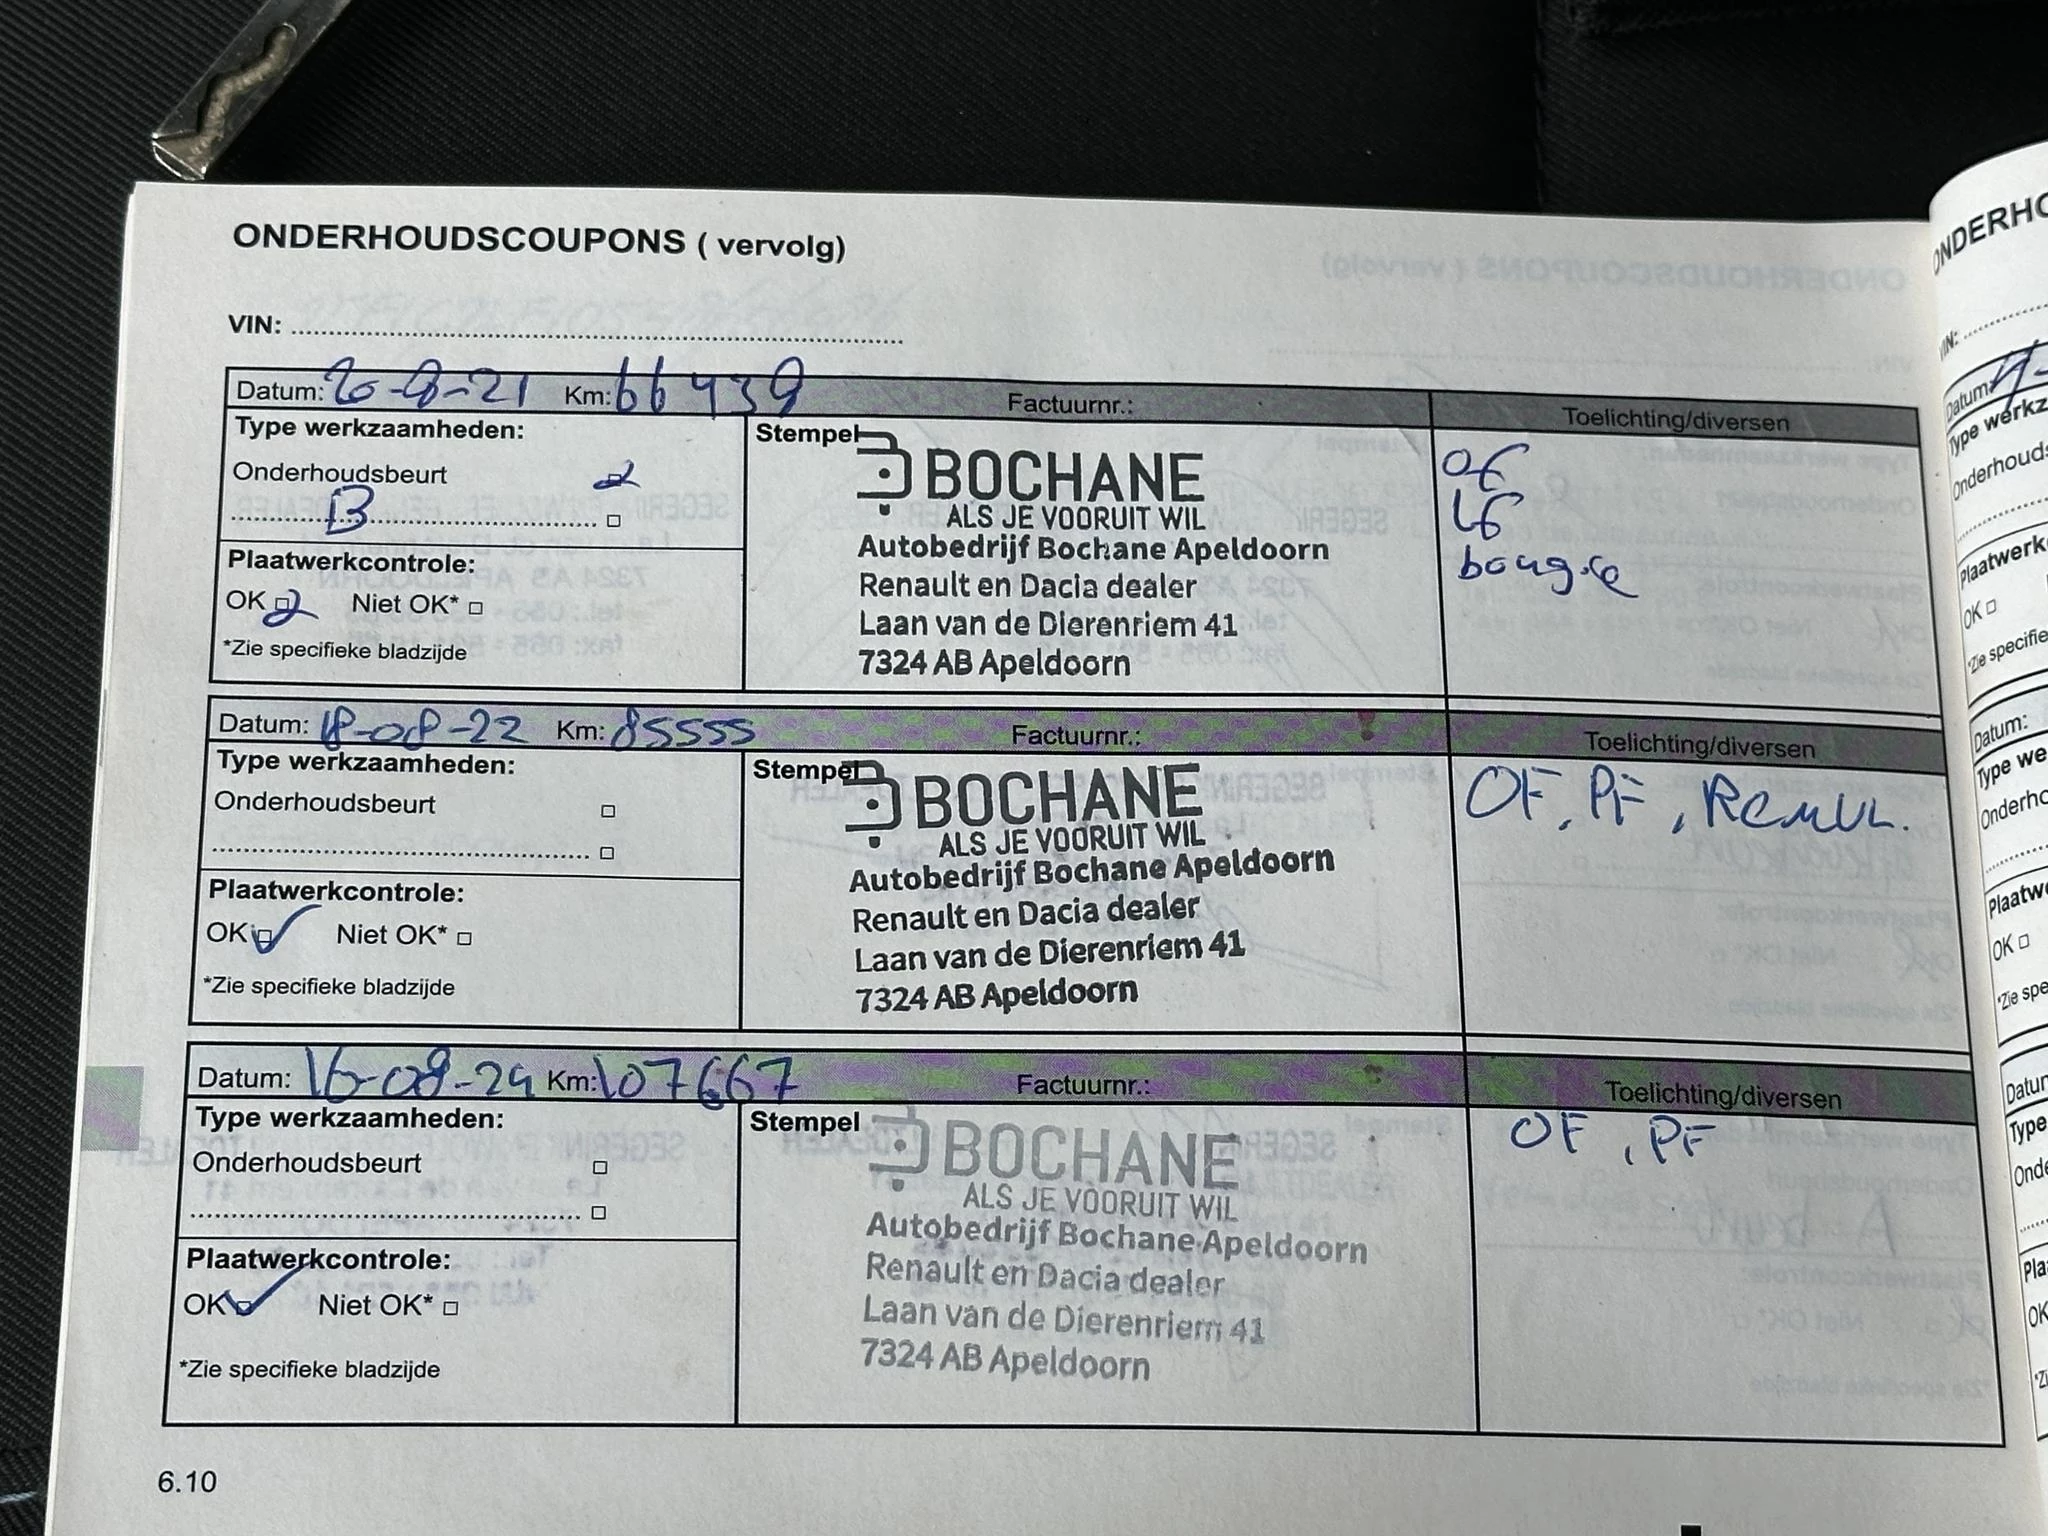 ONDERHOUDSCOUPONS ( vervolg)
VIN:
Datum: 20-8-21 Km: 66439 Factuurnr.: Toelichting/diversen
Type werkzaamheden:
Onderhoudsbeurt
B
Plaatwerkcontrole:
OK Niet OK*
*Zie specifieke bladzijde
Stempel
BOCHANE
ALS JE VOORUIT WIL
Autobedrijf Bochane Apeldoorn
Renault en Dacia dealer
Laan van de Dierenriem 41
7324 AB Apeldoorn
of
lf
bougie
Datum: 18-08-22 Km: 85555 Factuurnr.: Toelichting/diversen
Type werkzaamheden:
Onderhoudsbeurt
Plaatwerkcontrole:
OK Niet OK*
*Zie specifieke bladzijde
Stempel
BOCHANE
ALS JE VOORUIT WIL
Autobedrijf Bochane Apeldoorn
Renault en Dacia dealer
Laan van de Dierenriem 41
7324 AB Apeldoorn
OF, PF, REMVL.
Datum: 16-08-24 Km: 107667 Factuurnr.: Toelichting/diversen
Type werkzaamheden:
Onderhoudsbeurt
Plaatwerkcontrole:
OK Niet OK*
*Zie specifieke bladzijde
Stempel
BOCHANE
ALS JE VOORUIT WIL
Autobedrijf Bochane Apeldoorn
Renault en Dacia dealer
Laan van de Dierenriem 41
7324 AB Apeldoorn
OF, PF
6.10
VIN:
Datum:
Type werkz
Onderhouds
OK
*Zie specifie
Datum:
Type we
Onderho
Plaatwe
OK
*Zie spe
Type
Onde
Pla
OK